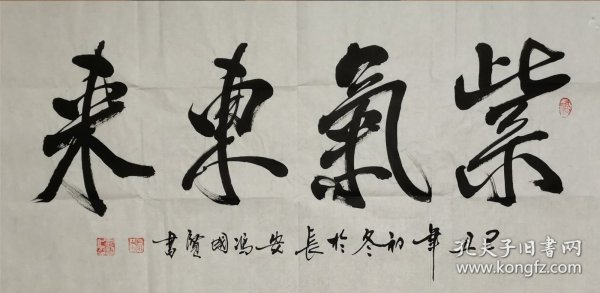 紫氣東来
己丑年初冬於長安馮國贤書
孔夫子旧书网
www.kongfz.com